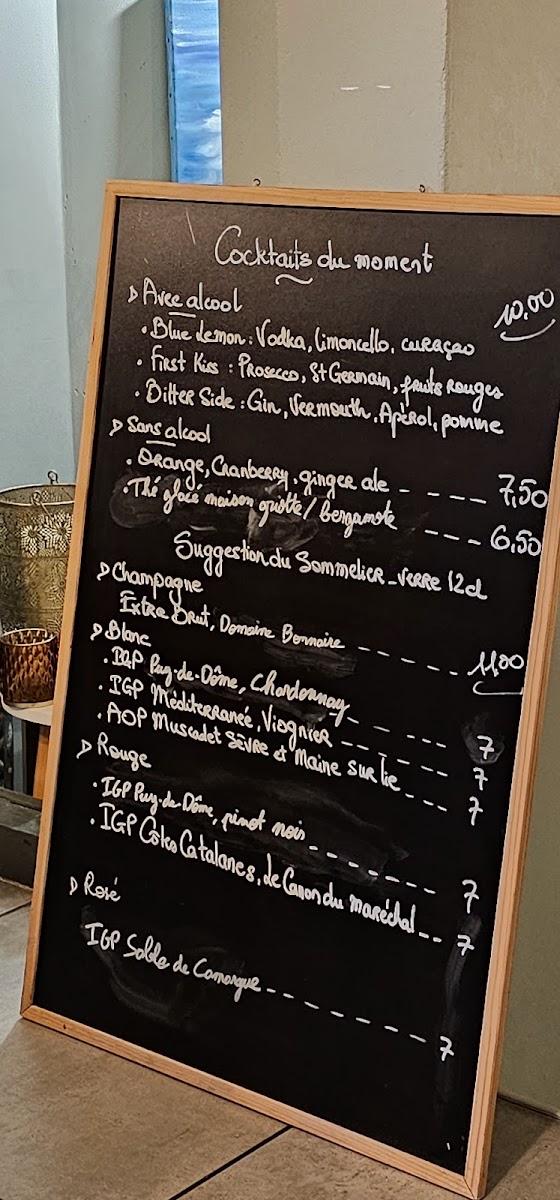 Cocktails du moment
> Avec alcool 10,00
• Blue Lemon : Vodka, limoncello, curaçao
• First Kiss : Prosecco, St Germain, fruits rouges
• Bitter Side : Gin, Vermouth, Apérol, pomme
> Sans alcool
• Orange, Cranberry, ginger ale _ _ _ _ _ 7,50
• Thé glacé maison griotte / bergamote _ _ _ _ 6,50
Suggestion du Sommelier _ verre 12cl
> Champagne
Extra Brut, Domaine Bonnaire _ _ _ _ _ 11,00
> Blanc
• IGP Puy-de-Dôme, Chardonnay _ _ _ _ _ 7
• IGP Méditerranée, Viognier _ _ _ _ _ 7
• AOP Muscadet Sèvre et Maine sur lie _ _ _ 7
> Rouge
• IGP Puy-de-Dôme, pinot noir _ _ _ _ _ _ 7
• IGP Côtes Catalanes, Le Canon du maréchal _ _ 7
> Rosé
IGP Sable de Camargue _ _ _ _ _ _ _ 7